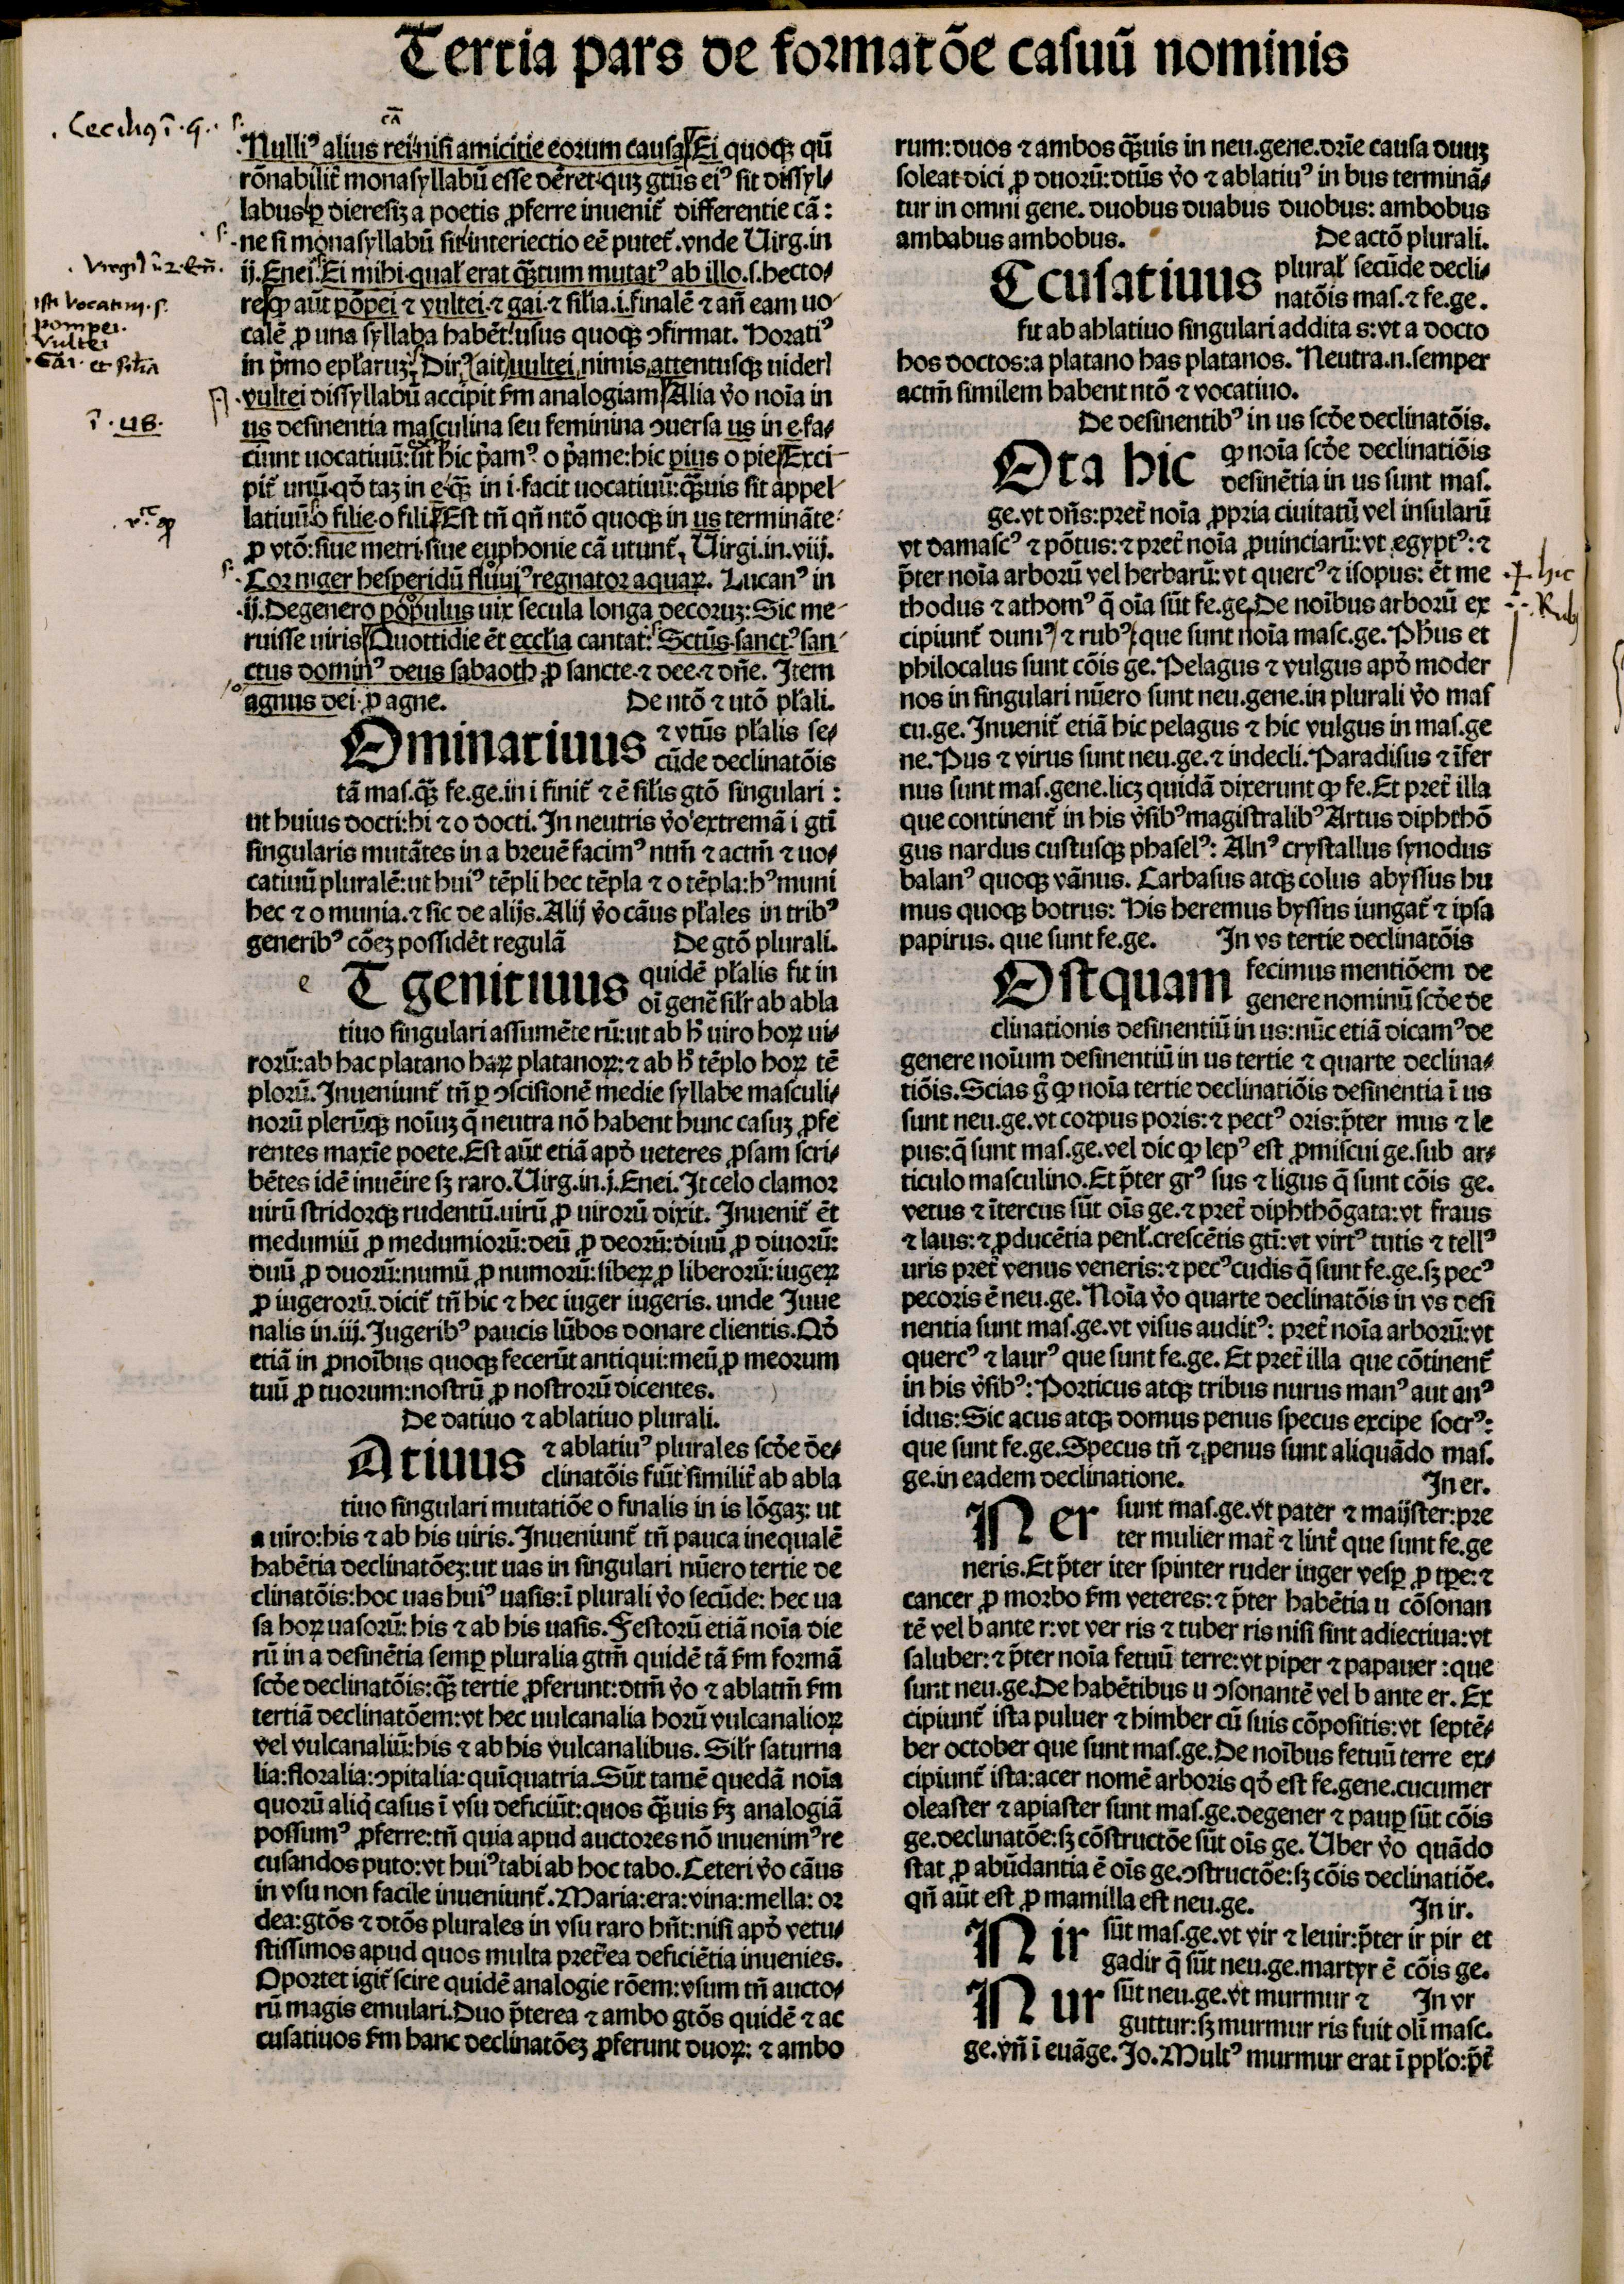 Tertia pars de formatōe casuū nominis
cā
Nulliꝰ alius rei nisi amicitie eorum causa Ei quoqꝫ qū
rōnabilit̃ monasyllabū esse dēret: quꝫ gtūs eiꝰ sit dissyl⸗
labus ꝑ dieresiꝫ a poetis ꝓferre inuenit̃ differentie cā:
ne si monasyllabū sit interiectio eē putet̃. vnde Uirg. in
ij. Enei. Ei mihi qual̃ erat quātum mutatꝰ ab illo. s. hecto⸗
re ꝙ aūt pōpei ⁊ vultei ⁊ gai ⁊ sil̃ia .i. finalē ⁊ añ eam uo⸗
calē ꝓ una syllaba habēt: usus quoqꝫ ↄfirmat. Horatiꝰ
in p̃mo epl̃aruꝫ: Durꝰ ait uultei nimis attentusqꝫ uiderl
vultei dissyllabū accipit fm analogiam Alia v̊o noīa in
us desinentia masculina seu feminina ↄuersa us in e fa⸗
ciunt uocatiuū: ut hic p̃amꝰ o p̃ame: hic pius o pie Exci⸗
pit̃ unū qd̄ taꝫ in e qꝫ̄ in i facit uocatiuū: qꝫ̄uis sit appel⸗
latiuū o filie o fili Est tñ qñ ntō quoqꝫ in us termināte
ꝓ vtō: siue metri siue euphonie cā utunt̃, Uirgi. in. viij.
Corniger hesperidū fluuiꝰ regnator aquaꝝ. Lucanꝰ in
ij. Degenero populus uix secula longa decoruꝫ: Sic me⸗
ruisse uiris Quottidie ēt ecclia cantat: Sctūs sanctꝰ san⸗
ctus dominꝰ deus sabaoth ꝓ sancte ⁊ dee ⁊ dñe. Item
agnus dei ꝓ agne. De ntō ⁊ utō pl̃ali.
Ominatiuus ⁊ vtūs pl̃alis se⸗
cūde declinatōis
tā mas. qꝫ̄ fe. ge. in i finit̃ ⁊ ē sil̃is gtō singulari:
ut huius docti: hi ⁊ o docti. In neutris v̊o extremā i gtī
singularis mutātes in a breuē facimꝰ ntm̄ ⁊ actm̄ ⁊ uo⸗
catiuū pluralē: ut huiꝰ tēpli hec tēpla ⁊ o tēpla: hꝰ muni
hec ⁊ o munia. ⁊ sic de alijs. Alij v̊o cāus pl̃ales in tribꝰ
generibꝰ cōeꝫ possidēt regulā De gtō plurali.
e T genitiuus quidē pl̃alis fit in
oī genē sil̃r ab abla
tiuo singulari assumēte rū: ut ab h̊ uiro hoꝝ ui⸗
rorū: ab hac platano haꝝ platanoꝝ: ⁊ ab h̊ tēplo hoꝝ tē
plorū. Inueniunt̃ tñ ꝑ ↄscisionē medie syllabe masculi⸗
norū plerūqꝫ noīuꝫ q̄ neutra nō habent hunc casuꝫ ꝓfe
rentes maxīe poete. Est aūt etiā apd̄ ueteres ꝓsam scri⸗
bētes idē inuēire sꝫ raro. Uirg. in. j. Enei. It celo clamor
uirū stridorqꝫ rudentū. uirū ꝓ uirorū dixit. Inuenit̃ ēt
medumiū ꝓ medumiorū: deū ꝓ deorū: diuū ꝓ diuorū:
duū ꝓ duorū: numū ꝓ numorū: libeꝝ ꝓ liberorū: iugeꝝ
ꝓ iugerorū. dicit̃ tñ hic ⁊ hec iuger iugeris. unde Juue
nalis in. iij. Iugeribꝰ paucis lūbos donare clientis. Qd̄
etiā in ꝓnoībus quoqꝫ fecerūt antiqui: meū ꝓ meorum
tuū ꝓ tuorum: nostrū ꝓ nostrorū dicentes.
De datiuo ⁊ ablatiuo plurali.
Atiuus ⁊ ablatiuꝰ plurales scd̄e de⸗
clinatōis fiūt similit̃ ab abla
tiuo singulari mutatiōe o finalis in is lōgaꝫ: ut
a uiro: his ⁊ ab his uiris. Inueniunt̃ tñ pauca inequalē
habētia declinatōeꝫ: ut uas in singulari nūero tertie de
clinatōis: hoc uas huiꝰ uasis: ī plurali v̊o secūde: hec ua
sa hoꝝ uasorū: his ⁊ ab his uasis. Festorū etiā noīa die
rū in a desinētia semꝑ pluralia gtm̄ quidē tā fm formā
scd̄e declinatōis: qꝫ̄ tertie ꝓferunt: dtm̄ v̊o ⁊ ablatm̄ fm
tertiā declinatōem: vt hec uulcanalia horū vulcanalioꝝ
vel vulcanaliū: his ⁊ ab his vulcanalibus. Sil̃r saturna
lia: floralia: ↄpitalia: quīquatria. Sūt tamē quedā noīa
quorū aliq̄ casus ī vsu deficiūt: quos qꝫ̄uis fꝫ analogiā
possumꝰ ꝓferre: tñ quia apud auctores nō inuenimꝰ re
cusandos puto: vt huiꝰ tabi ab hoc tabo. Ceteri v̊o cāus
in vsu non facile inueniunt̃. Maria: era: vina: mella: or
dea: gtōs ⁊ dtōs plurales in vsu raro hñt: nisi apd̄ vetu⸗
stissimos apud quos multa pret̃ea deficiētia inuenies.
Oportet igit̃ scire quidē analogie rōem: vsum tñ aucto⸗
rū magis emulari. Duo p̃terea ⁊ ambo gtōs quidē ⁊ ac
cusatiuos fm hanc declinatōeꝫ ꝓferunt duoꝝ: ⁊ ambo
rum: duos ⁊ ambos qꝫ̄uis in neu. gene. drīe causa duuꝫ
soleat dici ꝓ duorū: dtūs v̊o ⁊ ablatiuꝰ in bus terminā⸗
tur in omni gene. duobus duabus duobus: ambobus
ambabus ambobus. De actō plurali.
Ccusatiuus plural̃ secūde decli⸗
natōis mas. ⁊ fe. ge.
fit ab ablatiuo singulari addita s: vt a docto
hos doctos: a platano has platanos. Neutra. n. semper
actm̄ similem habent ntō ⁊ vocatiuo.
De desinentibꝰ in us scd̄e declinatōis.
Ota hic ꝙ noīa scd̄e declinatiōis
desinētia in us sunt mas.
ge. vt dñs: pret̃ noīa ꝓpria ciuitatū vel insularū
vt damascꝰ ⁊ pōtus: ⁊ pret̃ noīa ꝓuinciarū: vt egyptꝰ: ⁊
p̃ter noīa arborū vel herbarū: vt quercꝰ ⁊ isopus: ēt me
thodus ⁊ athomꝰ q̄ oīa sūt fe. ge. De noībus arborū ex
cipiunt̃ dumꝰ ⁊ rubꝰ que sunt noīa masc. ge. Ph̄us et
philocalus sunt cōis ge. Pelagus ⁊ vulgus apd̄ moder
nos in singulari nūero sunt neu. gene. in plurali v̊o mas
cu. ge. Inuenit̃ etiā hic pelagus ⁊ hic vulgus in mas. ge
ne. Pus ⁊ virus sunt neu. ge. ⁊ indecli. Paradisus ⁊ īfer
nus sunt mas. gene. licꝫ quidā dixerunt ꝙ fe. Et pret̃ illa
que continent̃ in his v̊sibꝰ magistralibꝰ Artus diphthō
gus nardus custusqꝫ phaselꝰ: Alnꝰ crystallus synodus
balanꝰ quoqꝫ vānus. Carbasus atqꝫ colus abyssus hu
mus quoqꝫ botrus: His heremus byssus iungat̃ ⁊ ipsa
papirus. que sunt fe. ge. In vs tertie declinatōis
Ostquam fecimus mentiōem de
genere nominū scd̄e de
clinationis desinentiū in us: nūc etiā dicamꝰ de
genere noīum desinentiū in us tertie ⁊ quarte declina⸗
tiōis. Scias g̊ ꝙ noīa tertie declinatiōis desinentia ī us
sunt neu. ge. vt corpus poris: ⁊ pectꝰ oris: p̃ter mus ⁊ le
pus: q̄ sunt mas. ge. vel dic ꝙ lepꝰ est ꝓmiscui ge. sub ar⸗
ticulo masculino. Et p̃ter grꝰ sus ⁊ ligus q̄ sunt cōis ge.
vetus ⁊ ītercus sūt oīs ge. ⁊ pret̃ diphthōgata: vt fraus
⁊ laus: ⁊ ꝓducētia penl̃. crescētis gtī: vt virtꝰ tutis ⁊ tellꝰ
uris pret̃ venus veneris: ⁊ pecꝰ cudis q̄ sunt fe. ge. sꝫ pecꝰ
pecoris ē neu. ge. Noīa v̊o quarte declinatōis in vs desi
nentia sunt mas. ge. vt visus auditꝰ: pret̃ noīa arborū: vt
quercꝰ ⁊ laurꝰ que sunt fe. ge. Et pret̃ illa que cōtinent̃
in his v̊sibꝰ: Porticus atqꝫ tribus nurus manꝰ aut anꝰ
idus: Sic acus atqꝫ domus penus specus excipe socrꝰ:
que sunt fe. ge. Specus tñ ⁊ penus sunt aliquādo mas.
ge. in eadem declinatione. In er.
N er sunt mas. ge. vt pater ⁊ maijster: pre
ter mulier mat̃ ⁊ lint̃ que sunt fe. ge
neris. Et p̃ter iter spinter ruder iuger vesꝑ ꝓ tꝑe: ⁊
cancer ꝓ morbo fm veteres: ⁊ p̃ter habētia u cōsonan
tē vel b ante r: vt ver ris ⁊ tuber ris nisi sint adiectiua: vt
saluber: ⁊ p̃ter noīa fetuū terre: vt piper ⁊ papauer: que
sunt neu. ge. De habētibus u ↄsonantē vel b ante er. Ex
cipiunt̃ ista puluer ⁊ himber cū suis cōpositis: vt septē⸗
ber october que sunt mas. ge. De noībus fetuū terre ex⸗
cipiunt̃ ista: acer nomē arboris qd̄ est fe. gene. cucumer
oleaster ⁊ apiaster sunt mas. ge. degener ⁊ pauꝑ sūt cōis
ge. declinatōe: sꝫ cōstructōe sūt oīs ge. Uber v̊o quādo
stat ꝓ abūdantia ē oīs ge. ↄstructōe: sꝫ cōis declinatiōe.
qñ aūt est ꝓ mamilla est neu. ge. In ir.
N ir sūt mas. ge. vt vir ⁊ leuir: p̃ter ir pir et
gadir q̄ sūt neu. ge. martyr ē cōis ge.
N ur sūt neu. ge. vt murmur ⁊ In vr
guttur: sꝫ murmur ris fuit olī masc.
ge. vñ ī euāge. Jo. Multꝰ murmur erat ī ppl̃o: p̃t̃
Ceciliꝰ ī. q.
Virgil ī 2. Eñ.
isti vocatiui. s.
pompei.
vultei
Gai. et sil̃ia
ī. us.
hic
Rubꝰ